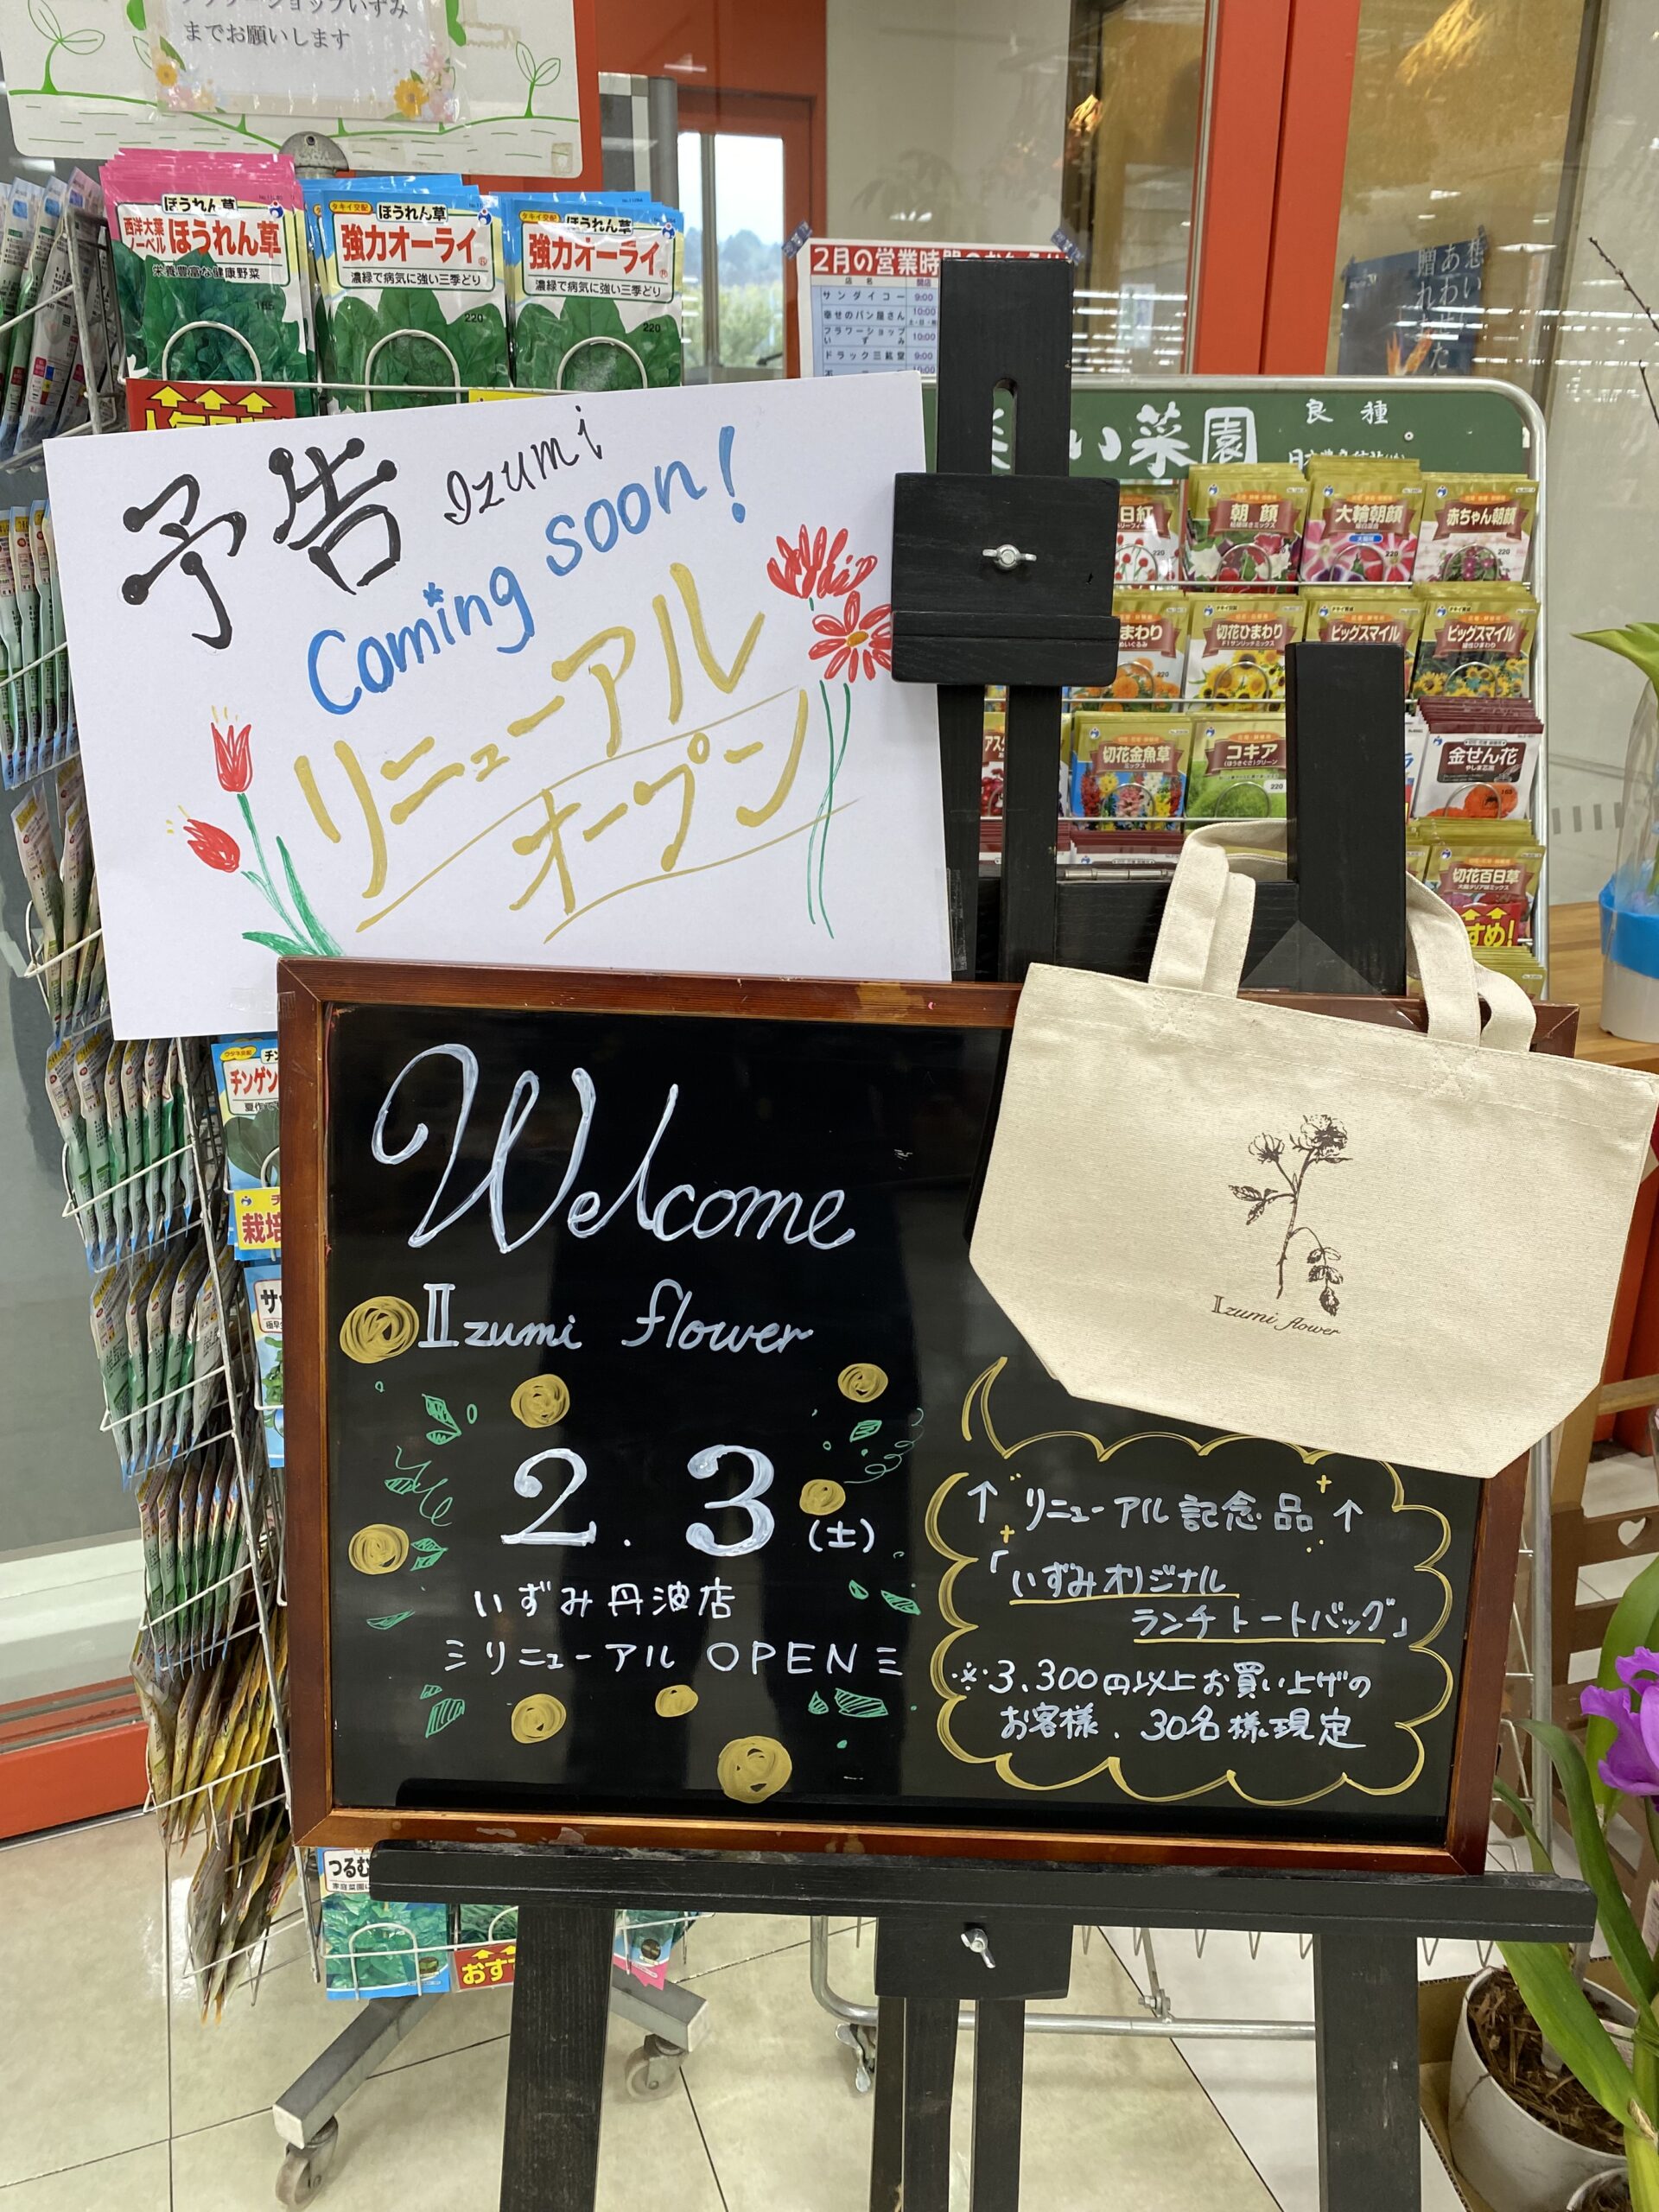 フラワーショップいずみ
までお願いします
ほうれん草
西洋大葉
ノーベル
ほうれん草
栄養豊富な健康野菜
165
タキイ交配
ほうれん草
強力オーライ
濃緑で病気に強い三季どり
220
タキイ交配
ほうれん草
強力オーライ
濃緑で病気に強い三季どり
220
2月の営業時間のお
店名 開店
サンダイコー 9:00
幸せのパン屋さん 10:00
フラワーショップ
いずみ 10:00
ドラック三鉱堂 9:00
想い
あわせた
贈れ
い菜園
良種
予告 Izumi
Coming soon!
リニューアル
オープン
日紅
朝顔
220
大輪朝顔
220
赤ちゃん朝顔
220
まわり
220
切花ひまわり
ビッグスマイル
ビッグスマイル
切花金魚草
ミックス
コキア
220
金せん花
切花百日草
すめ!
チンゲン
栽培
Welcome
Izumi flower
2.3(土)
いずみ丹波店
リニューアル OPEN
Izumi flower
↑リニューアル記念品↑
「いずみオリジナル
ランチトートバッグ」
※3,300円以上お買い上げの
お客様、30名様現定
つるむ
おす